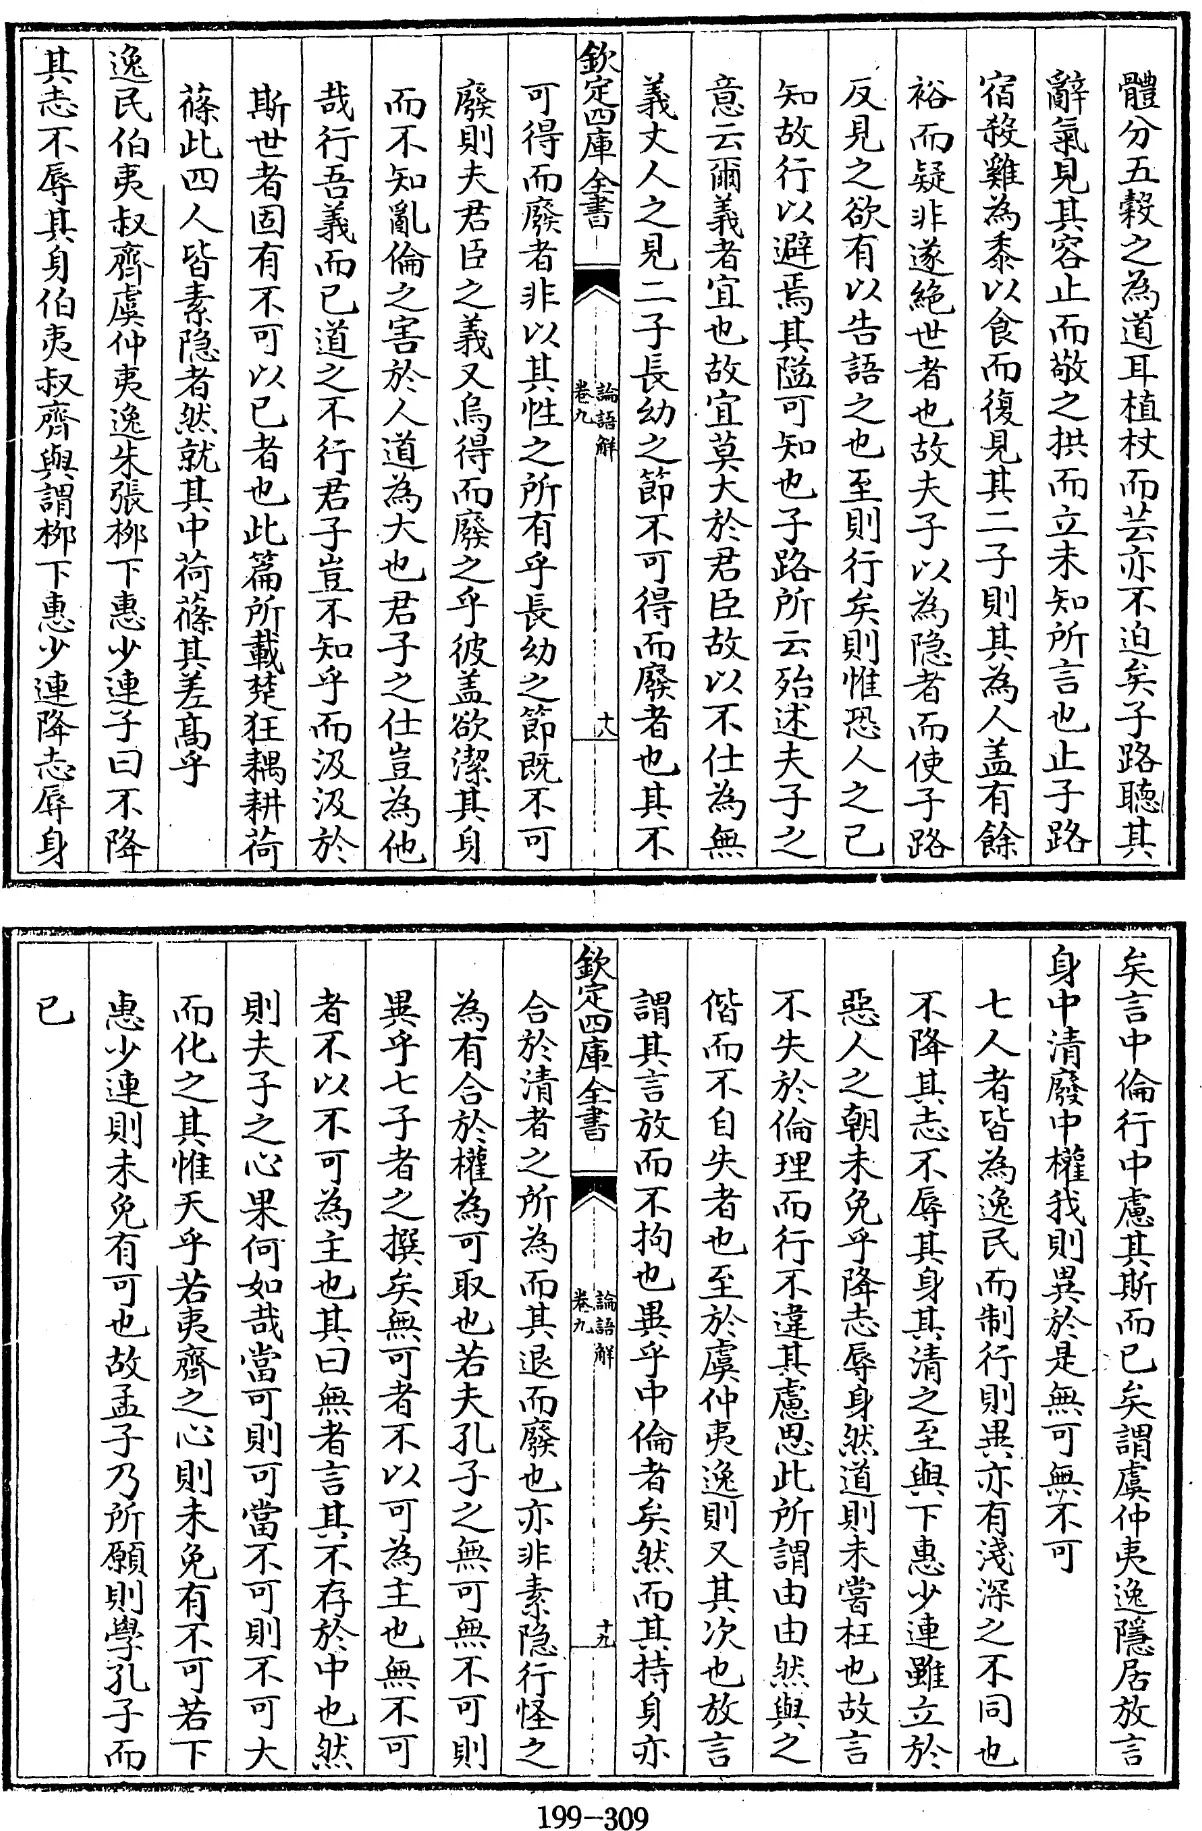 體分五穀之為道耳植杖而芸亦不迫矣子路聽其
辭氣見其容止而敬之拱而立未知所言也止子路
宿殺雞為黍以食而復見其二子則其為人盖有餘
裕而疑非遂絶世者也故夫子以為隐者而使子路
反見之欲有以告語之也至則行矣則惟恐人之已
知故行以避焉其隘可知也子路所云殆述夫子之
意云爾義者宜也故宜莫大於君臣故以不仕為無
義丈人之見二子長幼之節不可得而廢者也其不
欽定四庫全書
論語解
卷九
十八
可得而廢者非以其性之所有乎長幼之節既不可
廢則夫君臣之義又烏得而廢之乎彼盖欲潔其身
而不知亂倫之害於人道為大也君子之仕豈為他
哉行吾義而已道之不行君子豈不知乎而汲汲於
斯世者固有不可以已者也此篇所載楚狂耦耕荷
蓧此四人皆素隐者然就其中荷蓧其差髙乎
逸民伯夷叔齊虞仲夷逸朱張栁下惠少連子曰不降
其志不辱其身伯夷叔齊與謂栁下惠少連降志辱身
矣言中倫行中慮其斯而已矣謂虞仲夷逸隱居放言
身中清廢中權我則異於是無可無不可
七人者皆為逸民而制行則異亦有淺深之不同也
不降其志不辱其身其清之至與下惠少連雖立於
惡人之朝未免乎降志辱身然道則未嘗枉也故言
不失於倫理而行不違其慮思此所謂由由然與之
偕而不自失者也至於虞仲夷逸則又其次也放言
謂其言放而不拘也異乎中倫者矣然而其持身亦
欽定四庫全書
論語解
卷九
十九
合於清者之所為而其退而廢也亦非素隐行怪之
為有合於權為可取也若夫孔子之無可無不可則
異乎七子者之撰矣無可者不以可為主也無不可
者不以不可為主也其曰無者言其不存於中也然
則夫子之心果何如哉當可則可當不可則不可大
而化之其惟天乎若夷齊之心則未免有不可若下
惠少連則未免有可也故孟子乃所願則學孔子而
已
199-309